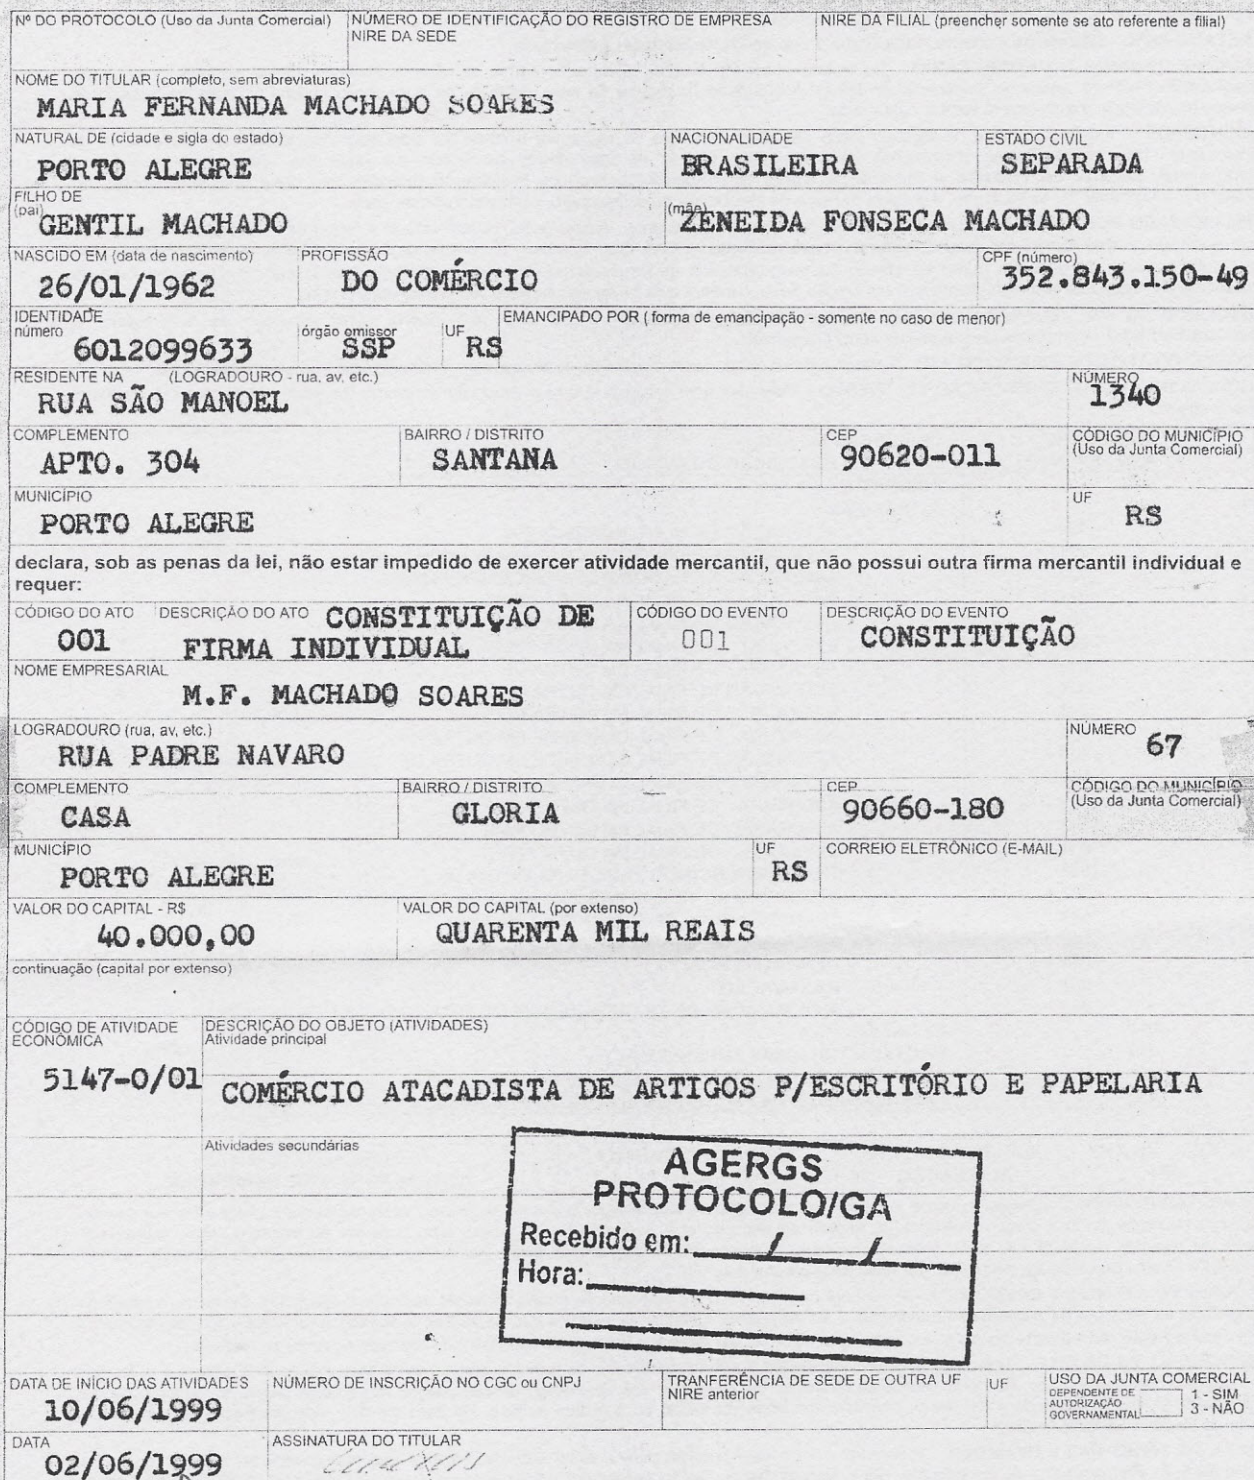 Nº DO PROTOCOLO (Uso da Junta Comercial)
NÚMERO DE IDENTIFICAÇÃO DO REGISTRO DE EMPRESA
NIRE DA SEDE
NIRE DA FILIAL (preencher somente se ato referente a filial)
NOME DO TITULAR (completo, sem abreviaturas)
MARIA FERNANDA MACHADO SOARES
NATURAL DE (cidade e sigla do estado)
PORTO ALEGRE
NACIONALIDADE
BRASILEIRA
ESTADO CIVIL
SEPARADA
FILHO DE
(pai)
GENTIL MACHADO
(mãe)
ZENEIDA FONSECA MACHADO
NASCIDO EM (data de nascimento)
26/01/1962
PROFISSÃO
DO COMÉRCIO
CPF (número)
352.843.150-49
IDENTIDADE
número
6012099633
órgão emissor
SSP
UF
RS
EMANCIPADO POR ( forma de emancipação - somente no caso de menor)
RESIDENTE NA (LOGRADOURO - rua, av, etc.)
RUA SÃO MANOEL
NÚMERO
1340
COMPLEMENTO
APTO. 304
BAIRRO / DISTRITO
SANTANA
CEP
90620-011
CÓDIGO DO MUNICÍPIO
(Uso da Junta Comercial)
MUNICÍPIO
PORTO ALEGRE
UF
RS
declara, sob as penas da lei, não estar impedido de exercer atividade mercantil, que não possui outra firma mercantil individual e
requer:
CÓDIGO DO ATO
001
DESCRIÇÃO DO ATO
CONSTITUIÇÃO DE
FIRMA INDIVIDUAL
CÓDIGO DO EVENTO
001
DESCRIÇÃO DO EVENTO
CONSTITUIÇÃO
NOME EMPRESARIAL
M.F. MACHADO SOARES
LOGRADOURO (rua, av, etc.)
RUA PADRE NAVARO
NÚMERO
67
COMPLEMENTO
CASA
BAIRRO / DISTRITO
GLORIA
CEP
90660-180
CÓDIGO DO MUNICÍPIO
(Uso da Junta Comercial)
MUNICÍPIO
PORTO ALEGRE
UF
RS
CORREIO ELETRÔNICO (E-MAIL)
VALOR DO CAPITAL - R$
40.000,00
VALOR DO CAPITAL (por extenso)
QUARENTA MIL REAIS
continuação (capital por extenso)
CÓDIGO DE ATIVIDADE
ECONÔMICA
5147-0/01
DESCRIÇÃO DO OBJETO (ATIVIDADES)
Atividade principal
COMÉRCIO ATACADISTA DE ARTIGOS P/ESCRITÓRIO E PAPELARIA
Atividades secundárias
AGERGS
PROTOCOLO/GA
Recebido em: / /
Hora:
DATA DE INÍCIO DAS ATIVIDADES
10/06/1999
NÚMERO DE INSCRIÇÃO NO CGC ou CNPJ
TRANFERÊNCIA DE SEDE DE OUTRA UF
NIRE anterior
UF
USO DA JUNTA COMERCIAL
DEPENDENTE DE
AUTORIZAÇÃO
GOVERNAMENTAL
1 - SIM
3 - NÃO
DATA
02/06/1999
ASSINATURA DO TITULAR